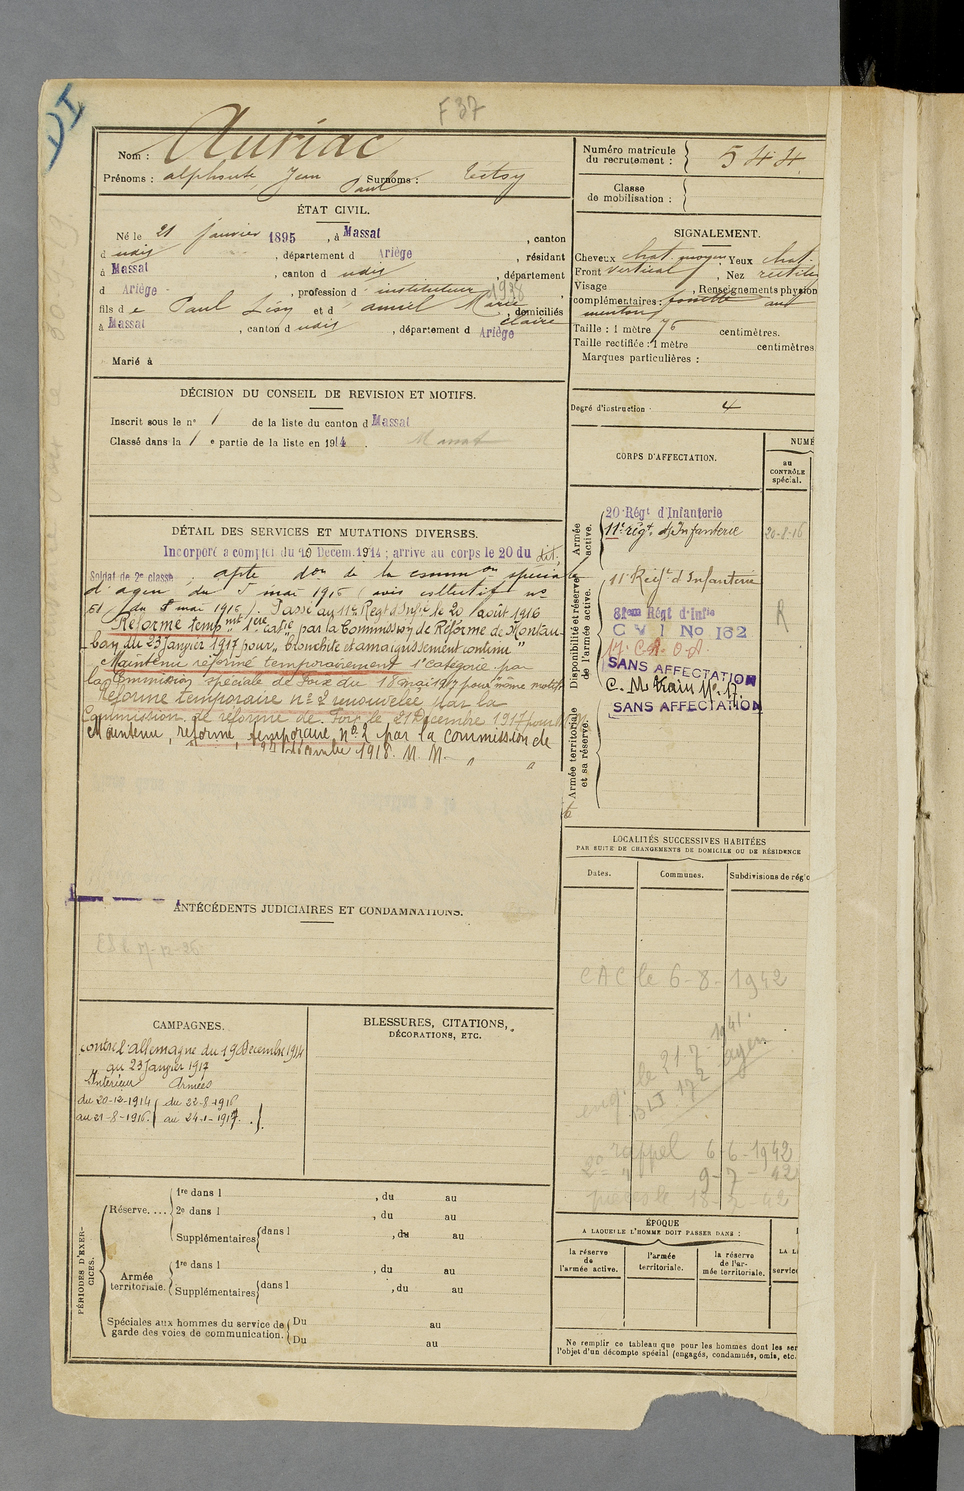 DI
F 37
Nom : Auriac
Prénoms : alphonse Jean Paul Surnoms :
ÉTAT CIVIL.
Né le 21 janvier 1895, à Massat, canton
d udit, département d Ariège, résidant
à Massat, canton d udit, département
d Ariège, profession d instituteur 1938
fils de Paul Lésy et d amiel Marie claire, domiciliés
à Massat, canton d udit, département d Ariège
Marié à
DÉCISION DU CONSEIL DE REVISION ET MOTIFS.
Inscrit sous le n° 1 de la liste du canton d Massat
Classé dans la 1e partie de la liste en 1914. Massat
DÉTAIL DES SERVICES ET MUTATIONS DIVERSES.
Incorporé à compter du 19 Décem. 1914 ; arrivé au corps le 20 du dit.
Soldat de 2e classe apte don de la common spéciale
d'agen du 5 mai 1916 (avis collectif no
61 du 8 mai 1916). Passé au 11e Régt d'Infie le 20 août 1916
Réformé tempmt 1ère catie par la Commission de Réforme de Montau-
ban du 23 Janvier 1917 pour "bronchite et amaigrissement continu"
Maintenu réformé temporairement 1e catégorie par
la Commission spéciale de Foix du 18 mai 1917 pour même motif
Réforme temporaire no 2 renouvelée par la
Commission de réforme de Foix le 21 Décembre 1917 pour
Maintenu, réformé, temporaire, No 2 par la Commission de
24 décembre 1918. M. M.
ANTÉCÉDENTS JUDICIAIRES ET CONDAMNATIONS.
CAMPAGNES.
contre l'allemagne du 19 Décembre 1914
au 23 Janvier 1917
Intérieur Armées
du 20-12-1914 du 22-8-1916
au 21-8-1916. au 24-1-1917.
BLESSURES, CITATIONS,
DÉCORATIONS, ETC.
PÉRIODES D'EXERCICES.
Réserve....
1re dans l , du au
2e dans l , du au
Supplémentaires dans l , du au
Armée territoriale.
1re dans l , du au
Supplémentaires dans l , du au
Spéciales aux hommes du service de Du au
garde des voies de communication. Du au
Numéro matricule
du recrutement : 544
Classe
de mobilisation :
SIGNALEMENT.
Cheveux chat. moyen Yeux chat.
Front vertical, Nez rectiligne
Visage , Renseignements physion
complémentaires : fossette au
menton
Taille : 1 mètre 76 centimètres.
Taille rectifiée : 1 mètre centimètres
Marques particulières :
Degré d'instruction : 4
CORPS D'AFFECTATION.
NUMÉ
au
CONTRÔLE
spécial.
Armée active.
20 Régt d'Infanterie
11e régt d'Infanterie 20-8-16
Disponibilité et réserve de l'armée active.
11e Régt d'Infanterie
81em Régt d'Infie
C V I No 162
17. C. O. A.
SANS AFFECTATION
C. M. Train No 17.
SANS AFFECTATION
R
Armée territoriale et sa réserve.
LOCALITÉS SUCCESSIVES HABITÉES
PAR SUITE DE CHANGEMENTS DE DOMICILE OU DE RÉSIDENCE
Dates. Communes. Subdivisions de régio
CAC le 6-8-1942
enq. le 21-7-1941.
BLJ 172 agen
2o rappel 6-6-1942
" 9-7-42
18-7-42
ÉPOQUE
A LAQUELLE L'HOMME DOIT PASSER DANS :
la réserve
de
l'armée active.
l'armée
territoriale.
la réserve
de l'ar-
mée territoriale.
LA LI
service
Ne remplir ce tableau que pour les hommes dont les ser
l'objet d'un décompte spécial (engagés, condamnés, omis, etc.